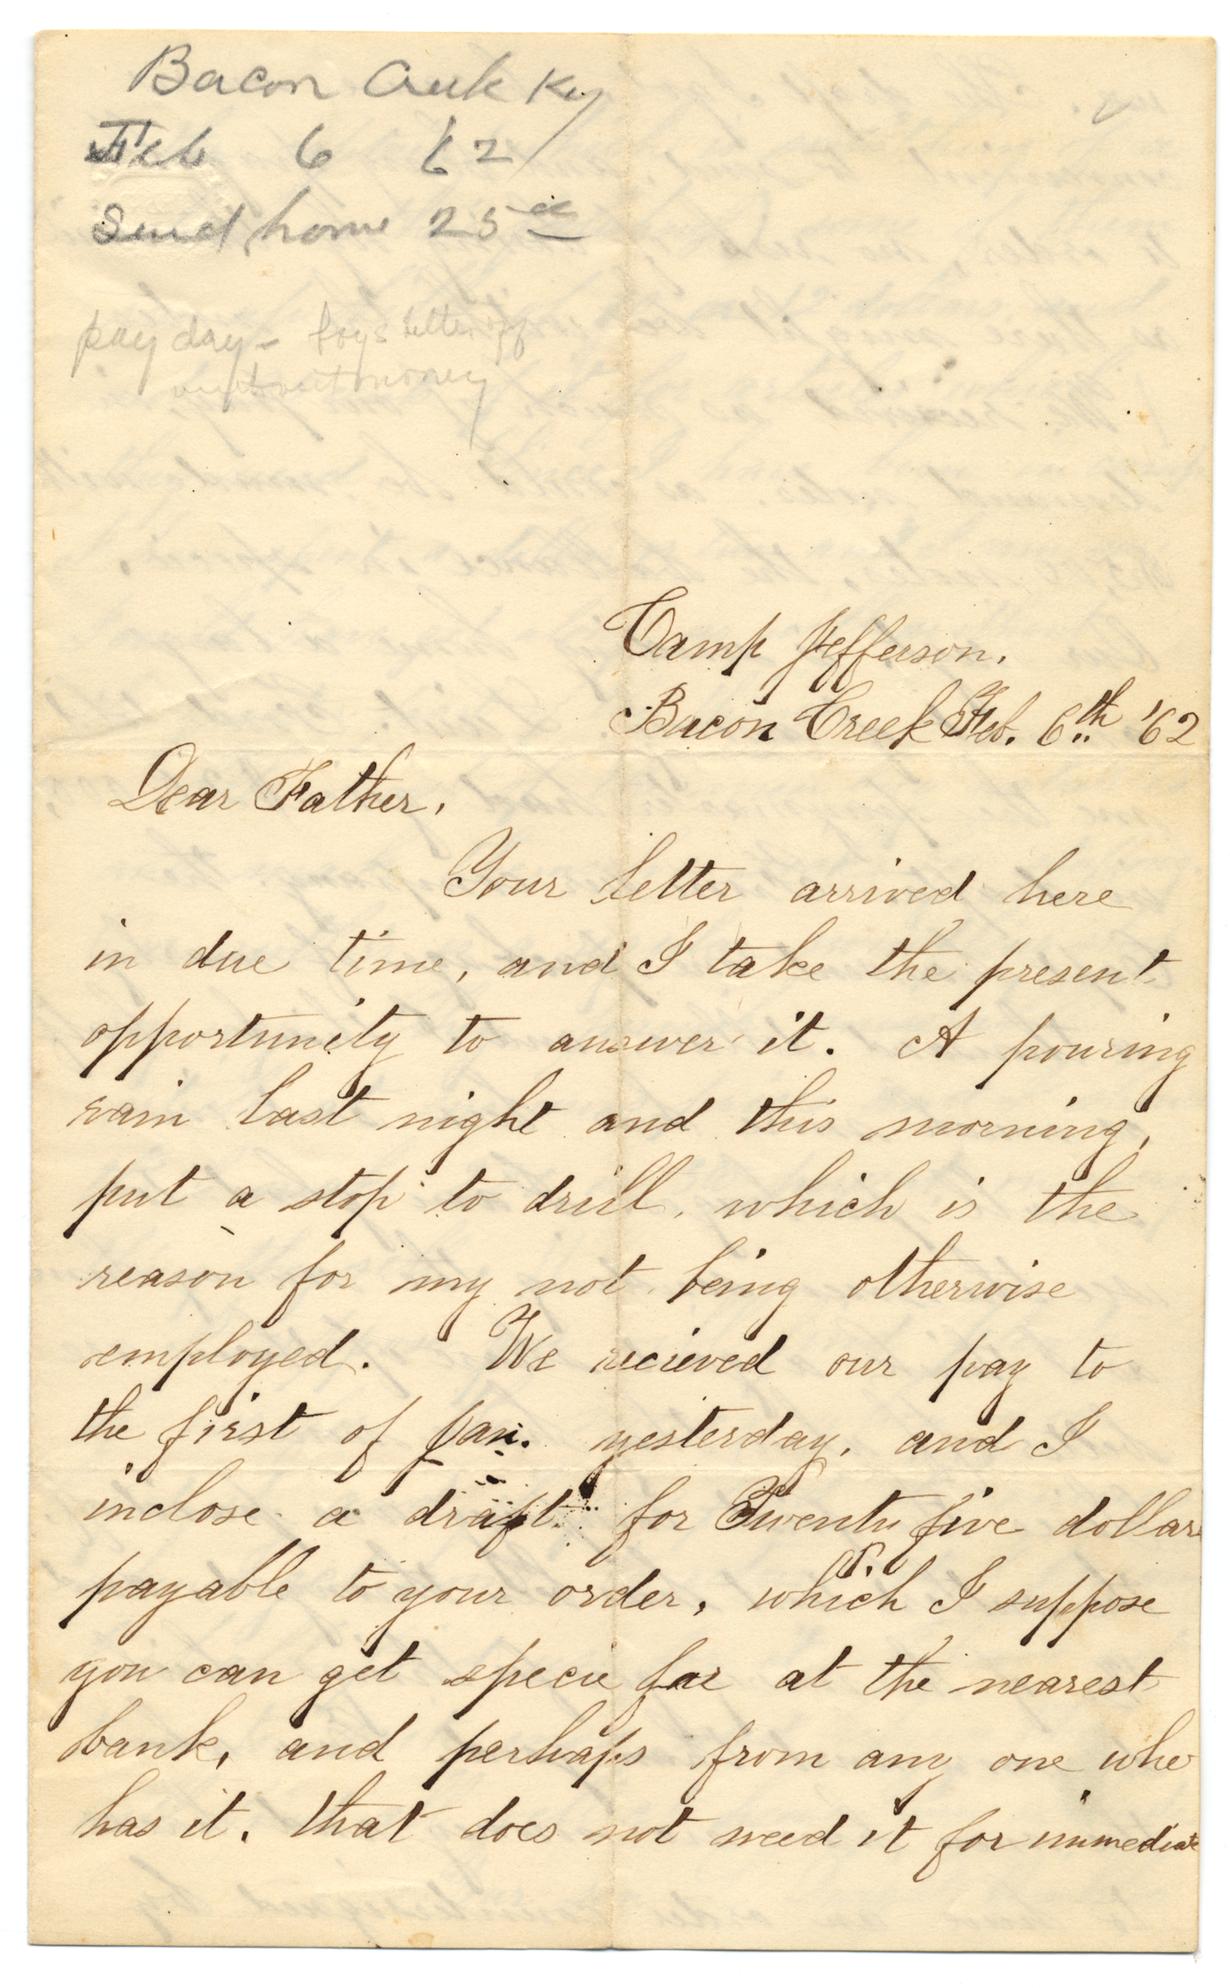 Bacon Creek Ky
Feb 6 62
Send home 25
pay day - boys better off
without money
Camp Jefferson.
Bacon Creek Feb. 6th '62
Dear Father,
Your letter arrived here
in due time, and I take the present
opportunity to answer it. A pouring
rain last night and this morning,
put a stop to drill, which is the
reason for my not being otherwise
employed. We recieved our pay to
the first of Jan. yesterday, and I
inclose a draft for Twenty five dollars
payable to your order, which I suppose
you can get specie for at the nearest
bank, and perhaps from any one who
has it, that does not need it for immediate